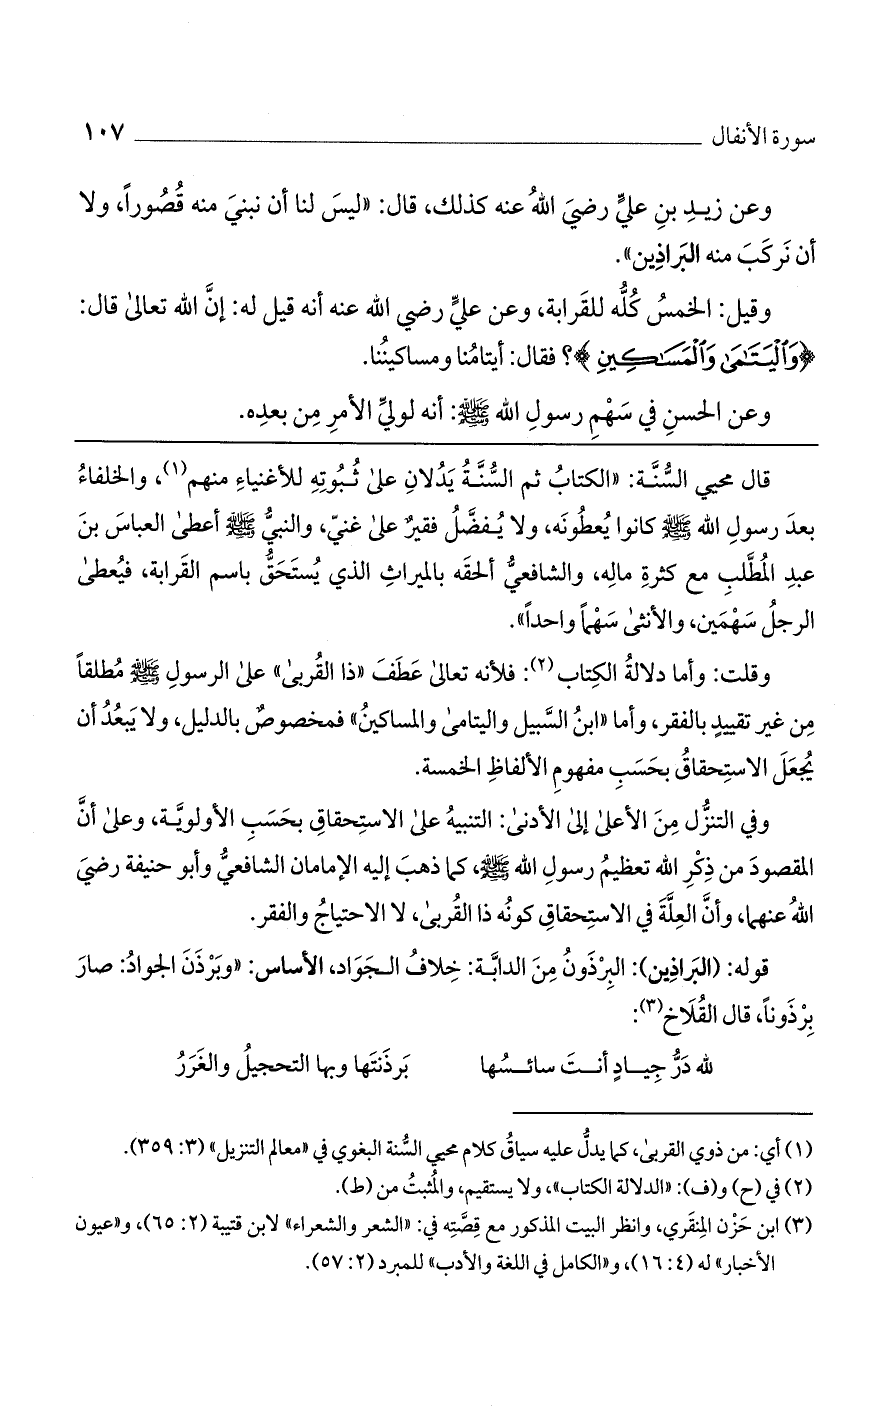 سورة الأنفال ١٠٧
وعن زيدِ بنِ عليٍّ رضيَ اللهُ عنه كذلك، قال: «ليسَ لنا أن نبنيَ منه قُصُوراً، ولا
أن نَركَبَ منه البَراذِين».
وقيل: الخمسُ كُلُّه للقَرابة، وعن عليٍّ رضي الله عنه أنه قيل له: إنَّ الله تعالىٰ قال:
﴿وَٱلْيَتَـٰمَىٰ وَٱلْمَسَـٰكِينِ﴾؟ فقال: أيتامُنا ومساكينُنا.
وعن الحسنِ في سَهْمِ رسولِ الله ﷺ: أنه لوليِّ الأمرِ مِن بعدِه.
قال محيي السُّنَّة: «الكتابُ ثم السُّنَّةُ يَدُلانِ علىٰ ثُبُوتِهِ للأغنياءِ منهم(١)، والخلفاءُ
بعدَ رسولِ الله ﷺ كانوا يُعطُونَه، ولا يُفضَّلُ فقيرٌ علىٰ غنيّ، والنبيُّ ﷺ أعطىٰ العباسَ بنَ
عبدِ المُطَّلبِ مع كثرةِ مالِه، والشافعيُّ ألحقَه بالميراثِ الذي يُستَحَقُّ باسم القَرابة، فيُعطىٰ
الرجلُ سَهْمَين، والأنثىٰ سَهْماً واحداً».
وقلت: وأما دلالةُ الكِتاب(٢): فلأنه تعالىٰ عَطَفَ «ذا القُربىٰ» علىٰ الرسولِ ﷺ مُطلقاً
مِن غير تقييدٍ بالفقر، وأما «ابنُ السَّبيل واليتامىٰ والمساكينُ» فمخصوصٌ بالدليل، ولا يَبعُدُ أن
يُجعَلَ الاستِحقاقُ بحَسَبِ مفهومِ الألفاظِ الخمسة.
وفي التنزُّل مِنَ الأعلىٰ إلىٰ الأدنىٰ: التنبيهُ علىٰ الاستِحقاقِ بحَسَبِ الأولويَّة، وعلىٰ أنَّ
المقصودَ من ذِكْرِ الله تعظيمُ رسولِ الله ﷺ، كما ذهبَ إليه الإمامان الشافعيُّ وأبو حنيفة رضيَ
اللهُ عنهما، وأنَّ العِلَّةَ في الاستِحقاقِ كونُه ذا القُربىٰ، لا الاحتياجُ والفقر.
قوله: (البَراذِين): البِرْذَونُ مِنَ الدابَّة: خِلافُ الجَوَاد، الأساس: «وبَرْذَنَ الجوادُ: صارَ
بِرْذَوناً، قال القُلَاخ(٣):
لله دَرُّ جِيـادٍ أنـتَ سائـسُها بَرذَنتَها وبها التحجيلُ والغَرَرُ
(١) أي: من ذوي القربىٰ، كما يدلُّ عليه سياقُ كلام محيي السُّنة البغوي في «معالم التنزيل» (٣: ٣٥٩).
(٢) في (ح) و(ف): «الدلالة الكتاب»، ولا يستقيم، والمُثبتُ من (ط).
(٣) ابن حَزْن المِنقَري، وانظر البيت المذكور مع قِصَّتِه في: «الشعر والشعراء» لابن قتيبة (٢: ٦٥)، و«عيون
الأخبار» له (٤: ١٦)، و«الكامل في اللغة والأدب» للمبرد (٢: ٥٧).